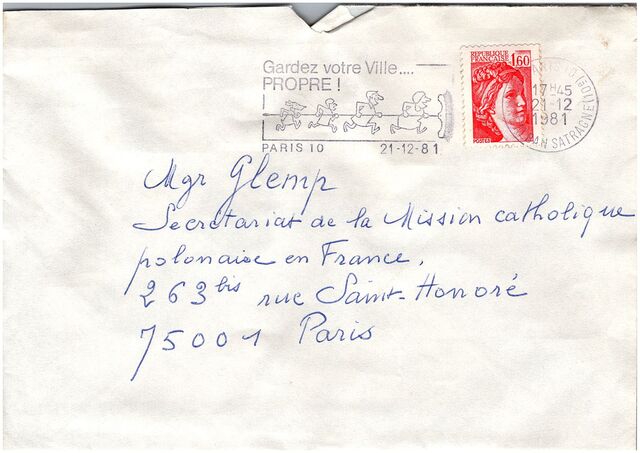 Gardez votre Ville....
PROPRE !
PARIS 10 21-12-81
REPUBLIQUE
FRANÇAISE 1,60
POSTES
17H45
21-12
1981
Mgr Glemp
Secrétariat de la Mission catholique
polonaise en France,
263 bis rue Saint-Honoré
75001 Paris